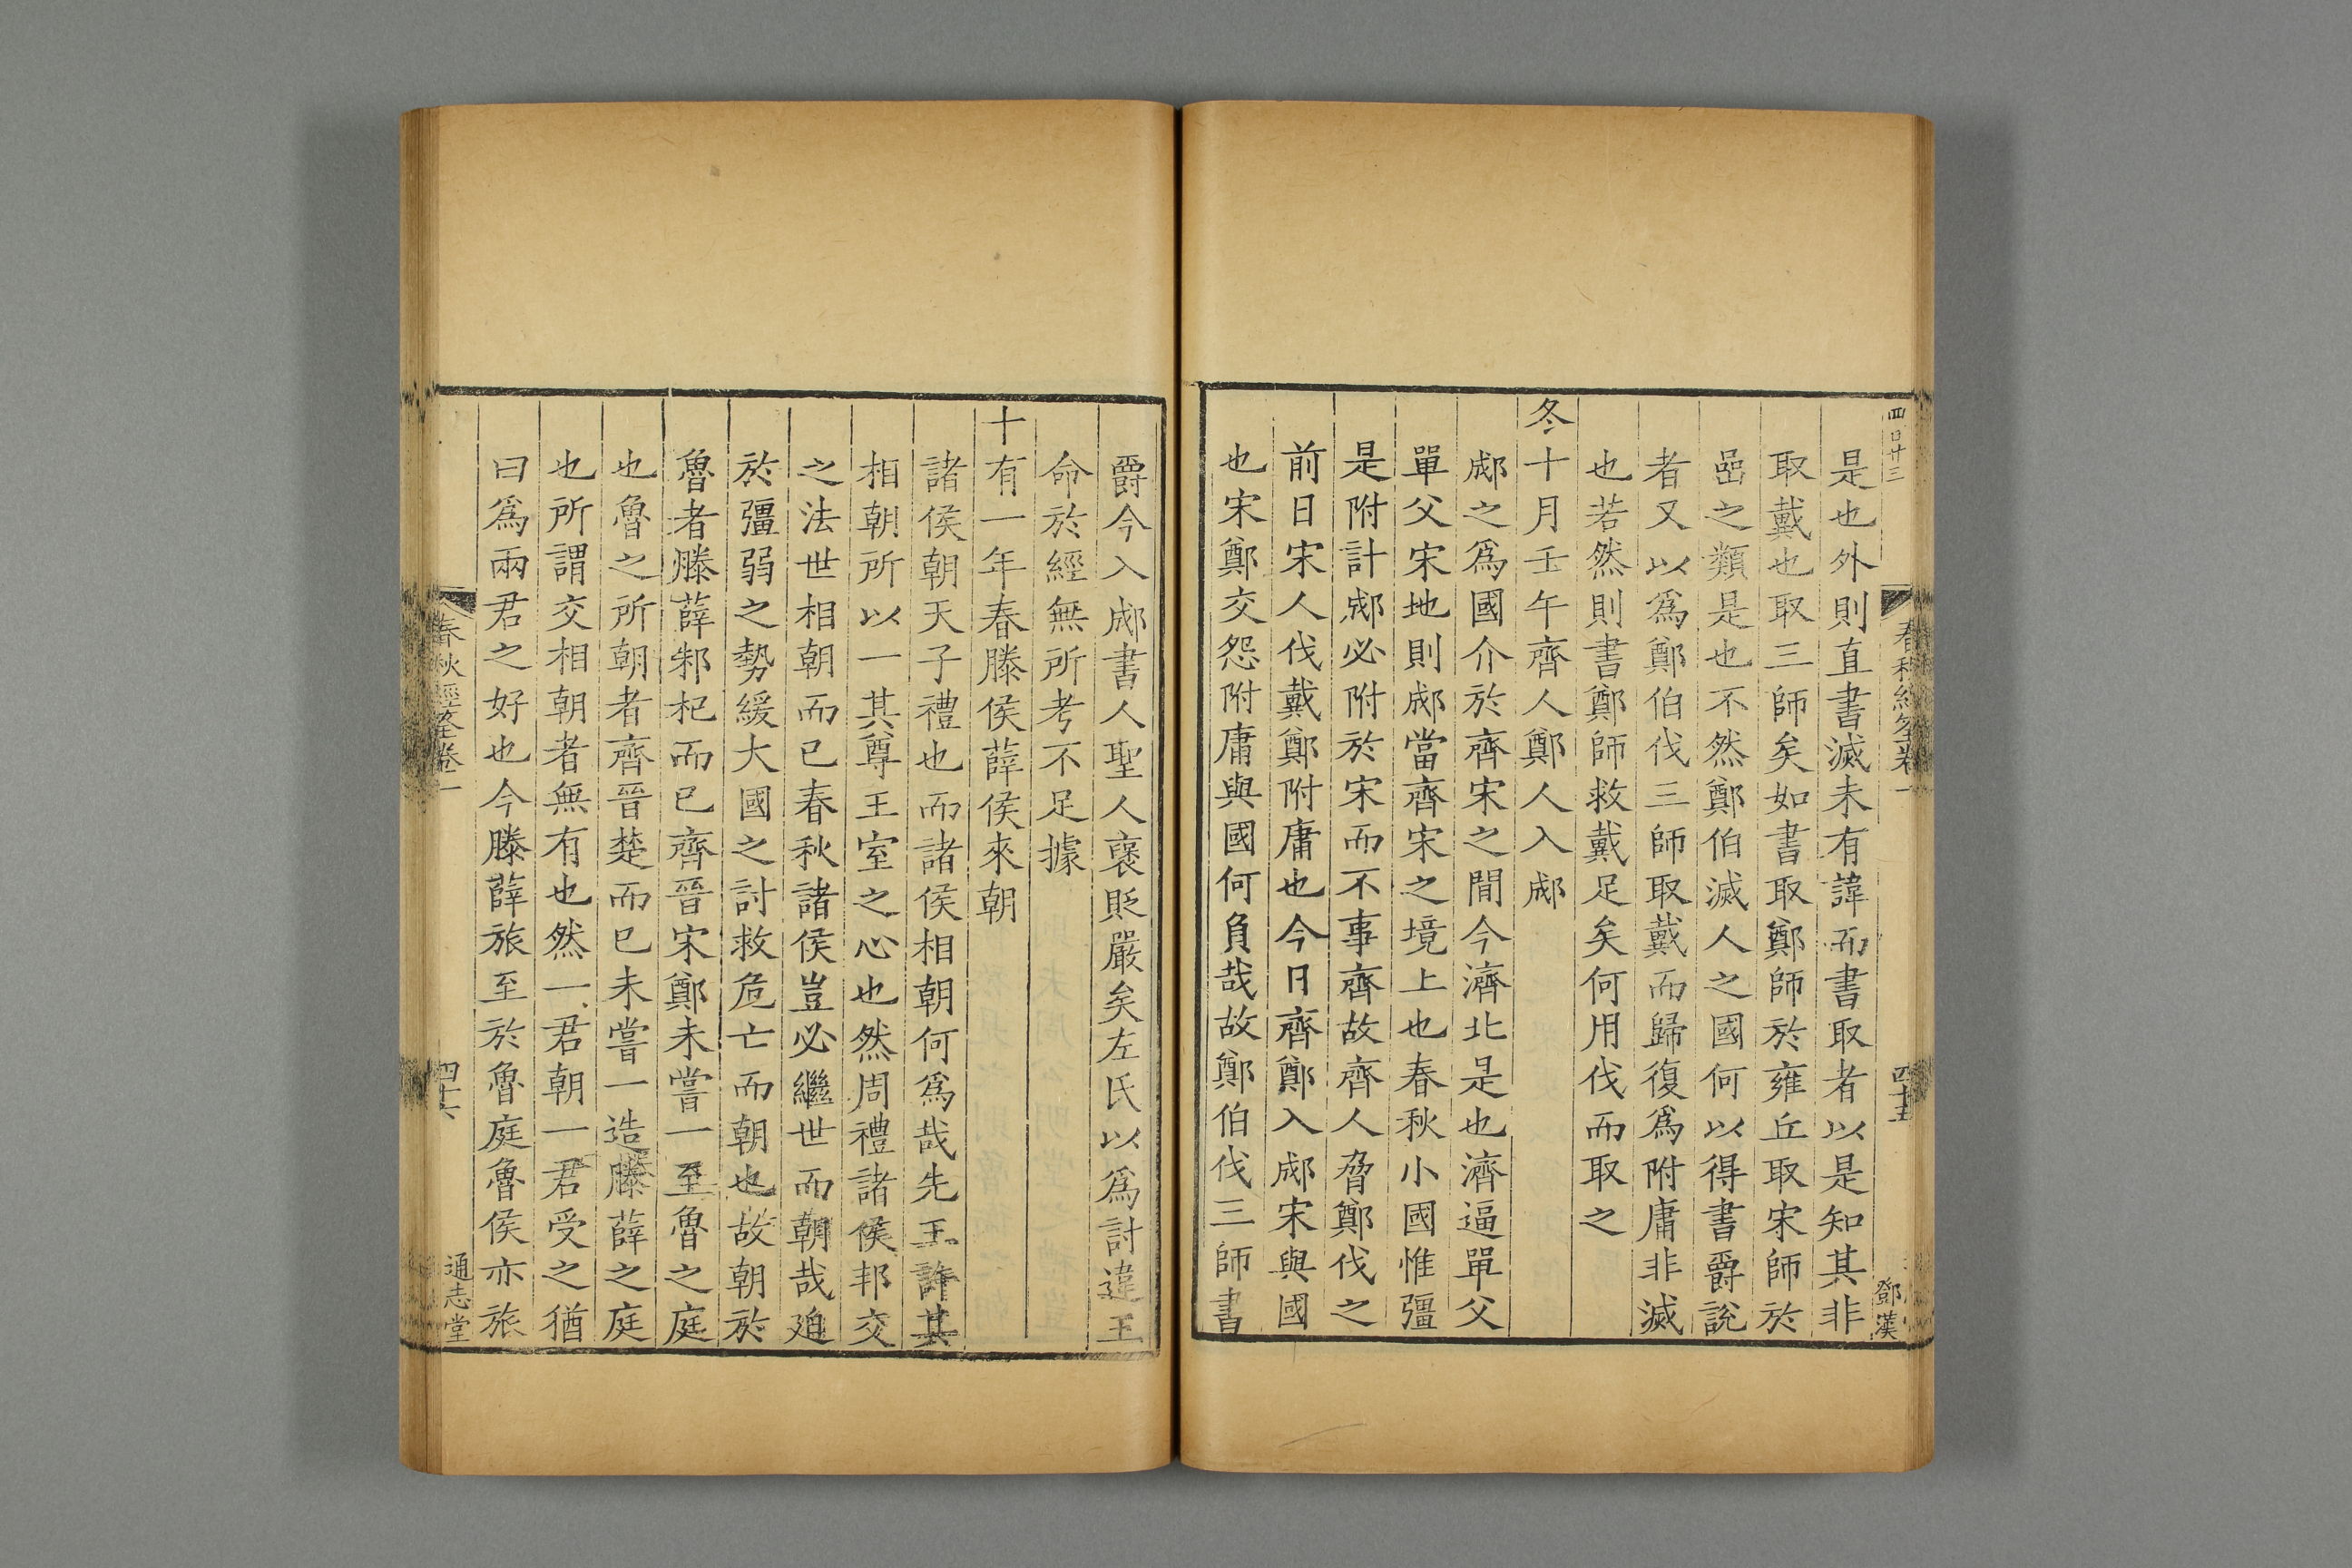 四百廿三
春秋經筌卷一
四十五
鄧漢
是也外則直書滅未有諱而書取者以是知其非
取戴也取三師矣如書取鄭師於雍丘取宋師於
嵒之類是也不然鄭伯滅人之國何以得書爵說
者又以爲鄭伯伐三師取戴而歸復爲附庸非滅
也若然則書鄭師救戴足矣何用伐而取之
冬十月壬午齊人鄭人入郕
郕之爲國介於齊宋之間今濟北是也濟逼單父
單父宋地則郕當齊宋之境上也春秋小國惟彊
是附計郕必附於宋而不事齊故齊人脅鄭伐之
前日宋人伐戴鄭附庸也今日齊鄭入郕宋與國
也宋鄭交怨附庸與國何負哉故鄭伯伐三師書
爵今入郕書人聖人褒貶嚴矣左氏以爲討違王
命於經無所考不足據
十有一年春滕侯薛侯來朝
諸侯朝天子禮也而諸侯相朝何爲哉先王許其
相朝所以一其尊王室之心也然周禮諸侯邦交
之法世相朝而已春秋諸侯豈必繼世而朝哉廹
於彊弱之勢緩大國之討救危亡而朝也故朝於
魯者滕薛邾杞而已齊晉宋鄭未嘗一至魯之庭
也魯之所朝者齊晉楚而已未嘗一造滕薛之庭
也所謂交相朝者無有也然一君朝一君受之猶
曰爲兩君之好也今滕薛旅至於魯庭魯侯亦旅
春秋經筌卷一
四十六
通志堂